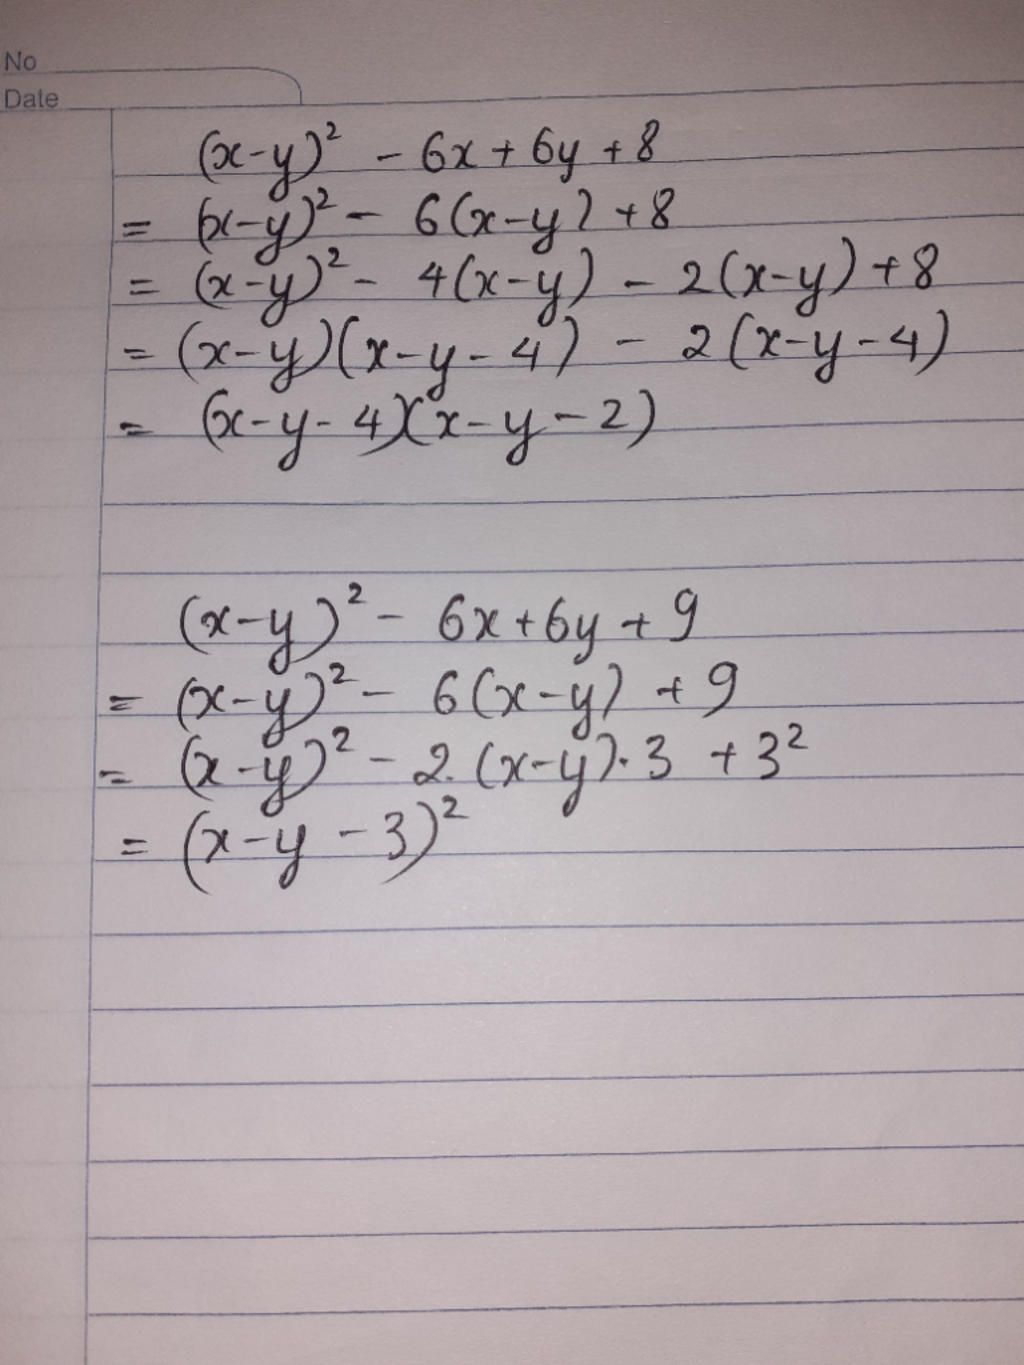 No
Date
(x-y)² - 6x + 6y + 8
= (x-y)² - 6(x-y) + 8
= (x-y)² - 4(x-y) - 2(x-y) + 8
= (x-y)(x-y-4) - 2(x-y-4)
= (x-y-4)(x-y-2)
(x-y)² - 6x + 6y + 9
= (x-y)² - 6(x-y) + 9
= (x-y)² - 2.(x-y).3 + 3²
= (x-y-3)²